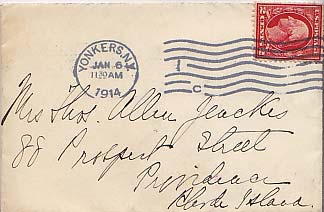 YONKERS, N.Y.
JAN 6
11:30 AM
1914
1
C
Mrs Thos. Allen Jenckes
88 Prospect Street
Providence
Rhode Island.